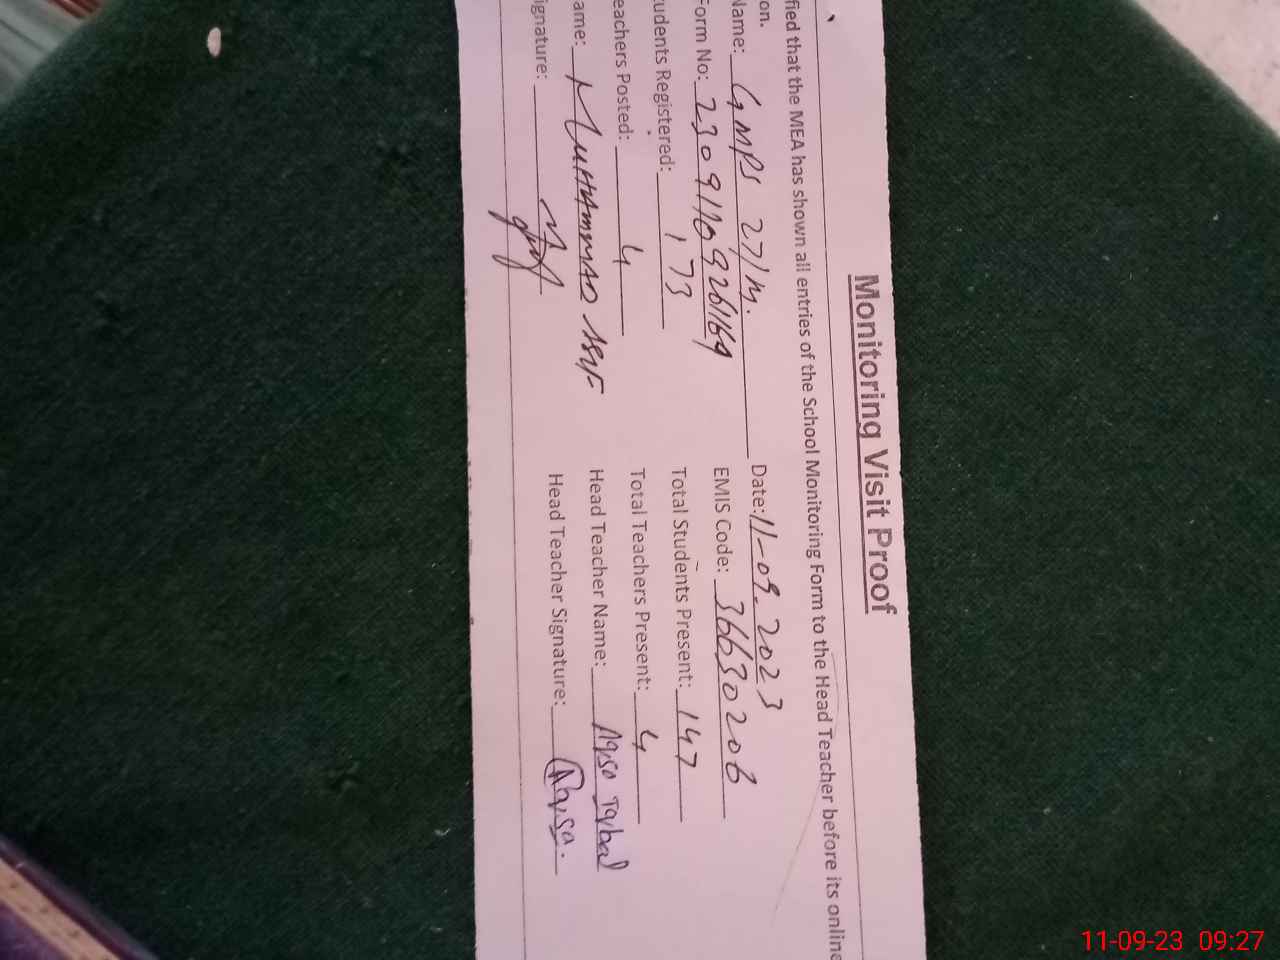 Monitoring Visit Proof
fied that the MEA has shown all entries of the School Monitoring Form to the Head Teacher before its online
on.
Name: GMPS 27/M. Date: 11-09-2023
Form No: EMIS Code: 36630206
tudents Registered: 173 Total Students Present: 147
eachers Posted: 4 Total Teachers Present: 4
ame: MUHAMMAD Head Teacher Name: Aqsa Iqbal
ignature: Head Teacher Signature: Aqsa.
11-09-23 09:27